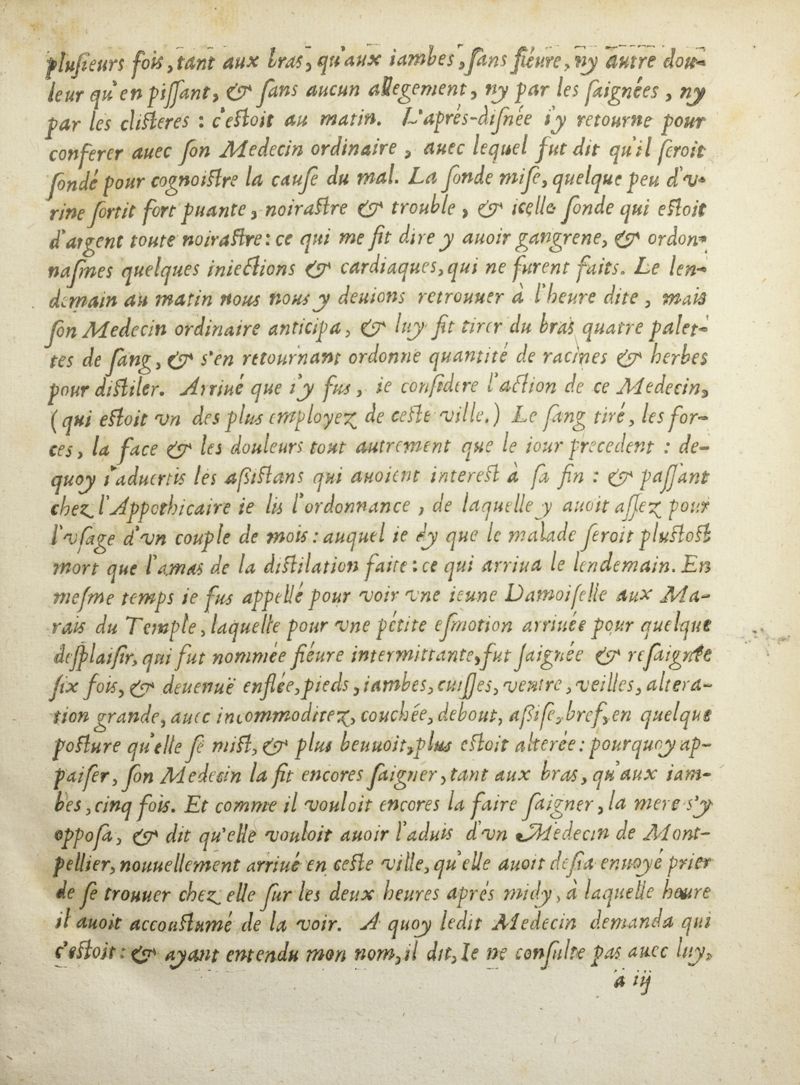 plusieurs fois, tant aux bras, qu'aux iambes, sans fiéure, ny autre dou-
leur qu'en pissant, & sans aucun allegement, ny par les saignées, ny
par les clisteres : c'estoit au matin. L'aprés-disnée i'y retourne pour
conferer auec son Medecin ordinaire, auec lequel fut dit qu'il seroit
sondé pour cognoistre la cause du mal. La sonde mise, quelque peu d'v-
rine sortit fort puante, noirastre & trouble, & icelle sonde qui estoit
d'argent toute noirastre: ce qui me fit dire y auoir gangrene, & ordon-
nasmes quelques iniections & cardiaques, qui ne furent faits. Le len-
demain au matin nous nous y deuions retrouuer à l'heure dite, mais
son Medecin ordinaire anticipa, & luy fit tirer du bras quatre palet-
tes de sang, & s'en retournant ordonne quantité de racines & herbes
pour distiler. Arriué que i'y fus, ie considere l'action de ce Medecin,
(qui estoit vn des plus employez de ceste ville.) Le sang tiré, les for-
ces, la face & les douleurs tout autrement que le iour precedent : de-
quoy i'aduertis les assistans qui auoient interest à sa fin : & passant
chez l'Appothicaire ie lis l'ordonnance, de laquelle y auoit assez pour
l'vsage d'vn couple de mois: auquel ie dy que le malade seroit plustost
mort que l'amas de la distilation faite: ce qui arriua le lendemain. En
mesme temps ie fus appellé pour voir vne ieune Damoiselle aux Ma-
rais du Temple, laquelle pour vne petite esmotion arriuée pour quelque
desplaisir, qui fut nommée fiéure intermittante, fut saignée & resaignée
six fois, & deuenuë enflée, pieds, iambes, cuisses, ventre, veilles, altera-
tion grande, auec incommoditez, couchée, debout, assise, bref, en quelque
posture qu'elle se mist, & plus beuuoit, plus estoit alterée: pourquoy ap-
paiser, son Medecin la fit encores saigner, tant aux bras, qu'aux iam-
bes, cinq fois. Et comme il vouloit encores la faire saigner, la mere s'y
opposa, & dit qu'elle vouloit auoir l'aduis d'vn Medecin de Mont-
pellier, nouuellement arriué en ceste ville, qu'elle auoit desia enuoyé prier
de se trouuer chez elle sur les deux heures aprés midy, à laquelle heure
il auoit accoustumé de la voir. A quoy ledit Medecin demanda qui
c'estoit: & ayant entendu mon nom, il dit, Ie ne consulte pas auec luy,
a iij